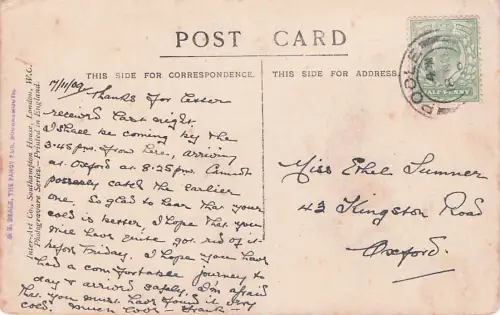 POST CARD
THIS SIDE FOR CORRESPONDENCE.
THIS SIDE FOR ADDRESS.
HALF PENNY
POOLE
17/11/09
Thanks for letter
received last night.
I shall be coming by the
3.45 pm. from here, arriving
at Oxford at 8.25 pm. Cannot
possibly catch the earlier
one. So glad to hear that your
cold is better, I hope that you
will have quite got rid of it
before Friday. I hope you have
had a comfortable journey to
day & arrived safely. I'm afraid
that you must have found it very
cold. Much love - Frank -
Miss Ethel Sumner
43 Kingston Road
Oxford.
Inter-Art Co., Southampton House, London, W.C.
Photogravure Series.—Printed in England.
BEALE, THE FANCY FAIR, BOURNEMOUTH.